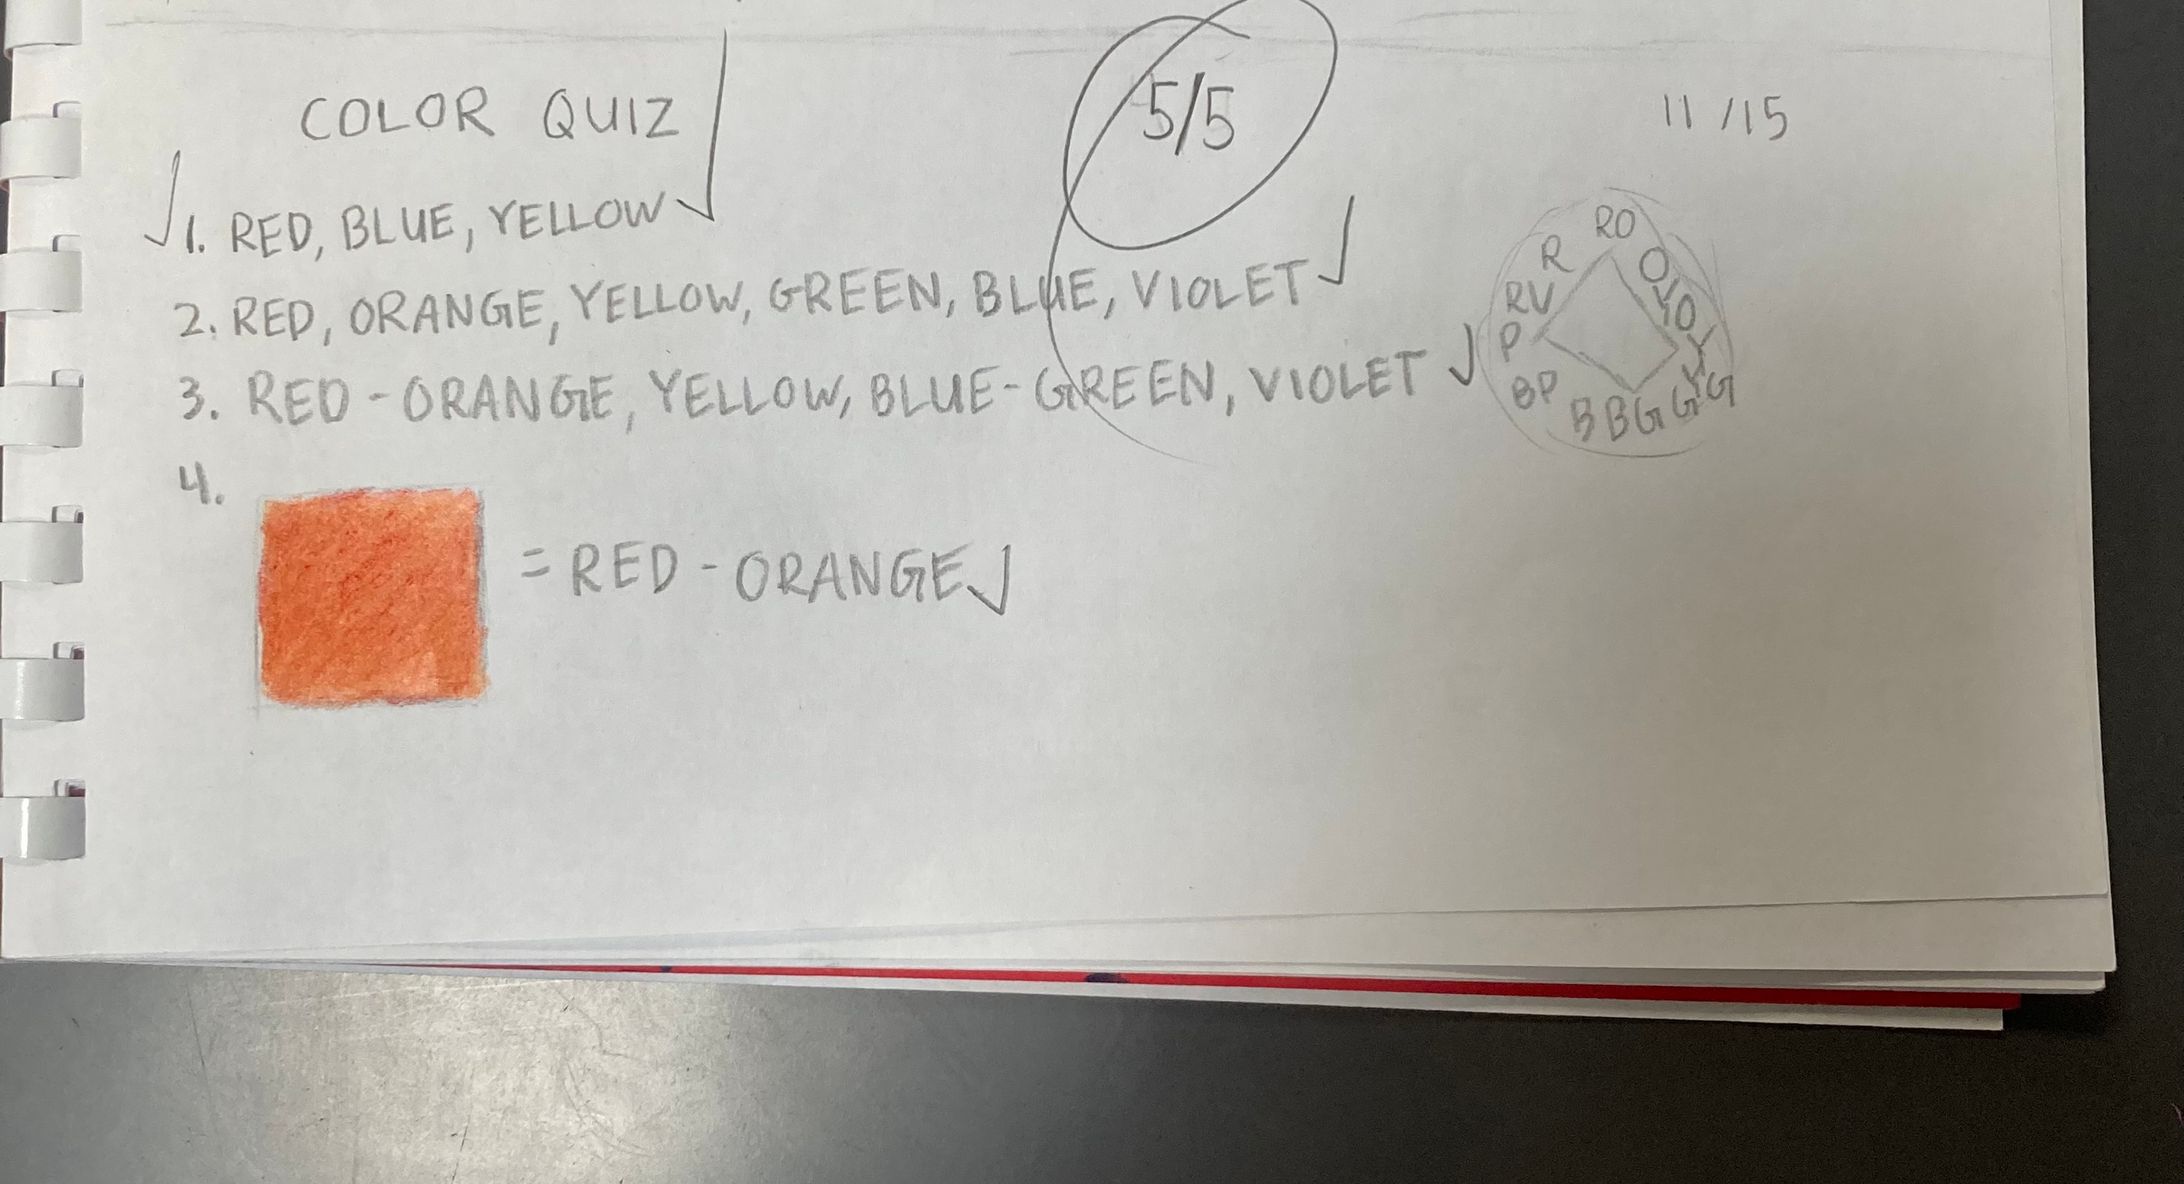 COLOR QUIZ
5/5
11/15
1. RED, BLUE, YELLOW
2. RED, ORANGE, YELLOW, GREEN, BLUE, VIOLET
3. RED-ORANGE, YELLOW, BLUE-GREEN, VIOLET
RO
R
O
RV
YO
P
Y
BP
YG
B
BG
G
4.
= RED-ORANGE